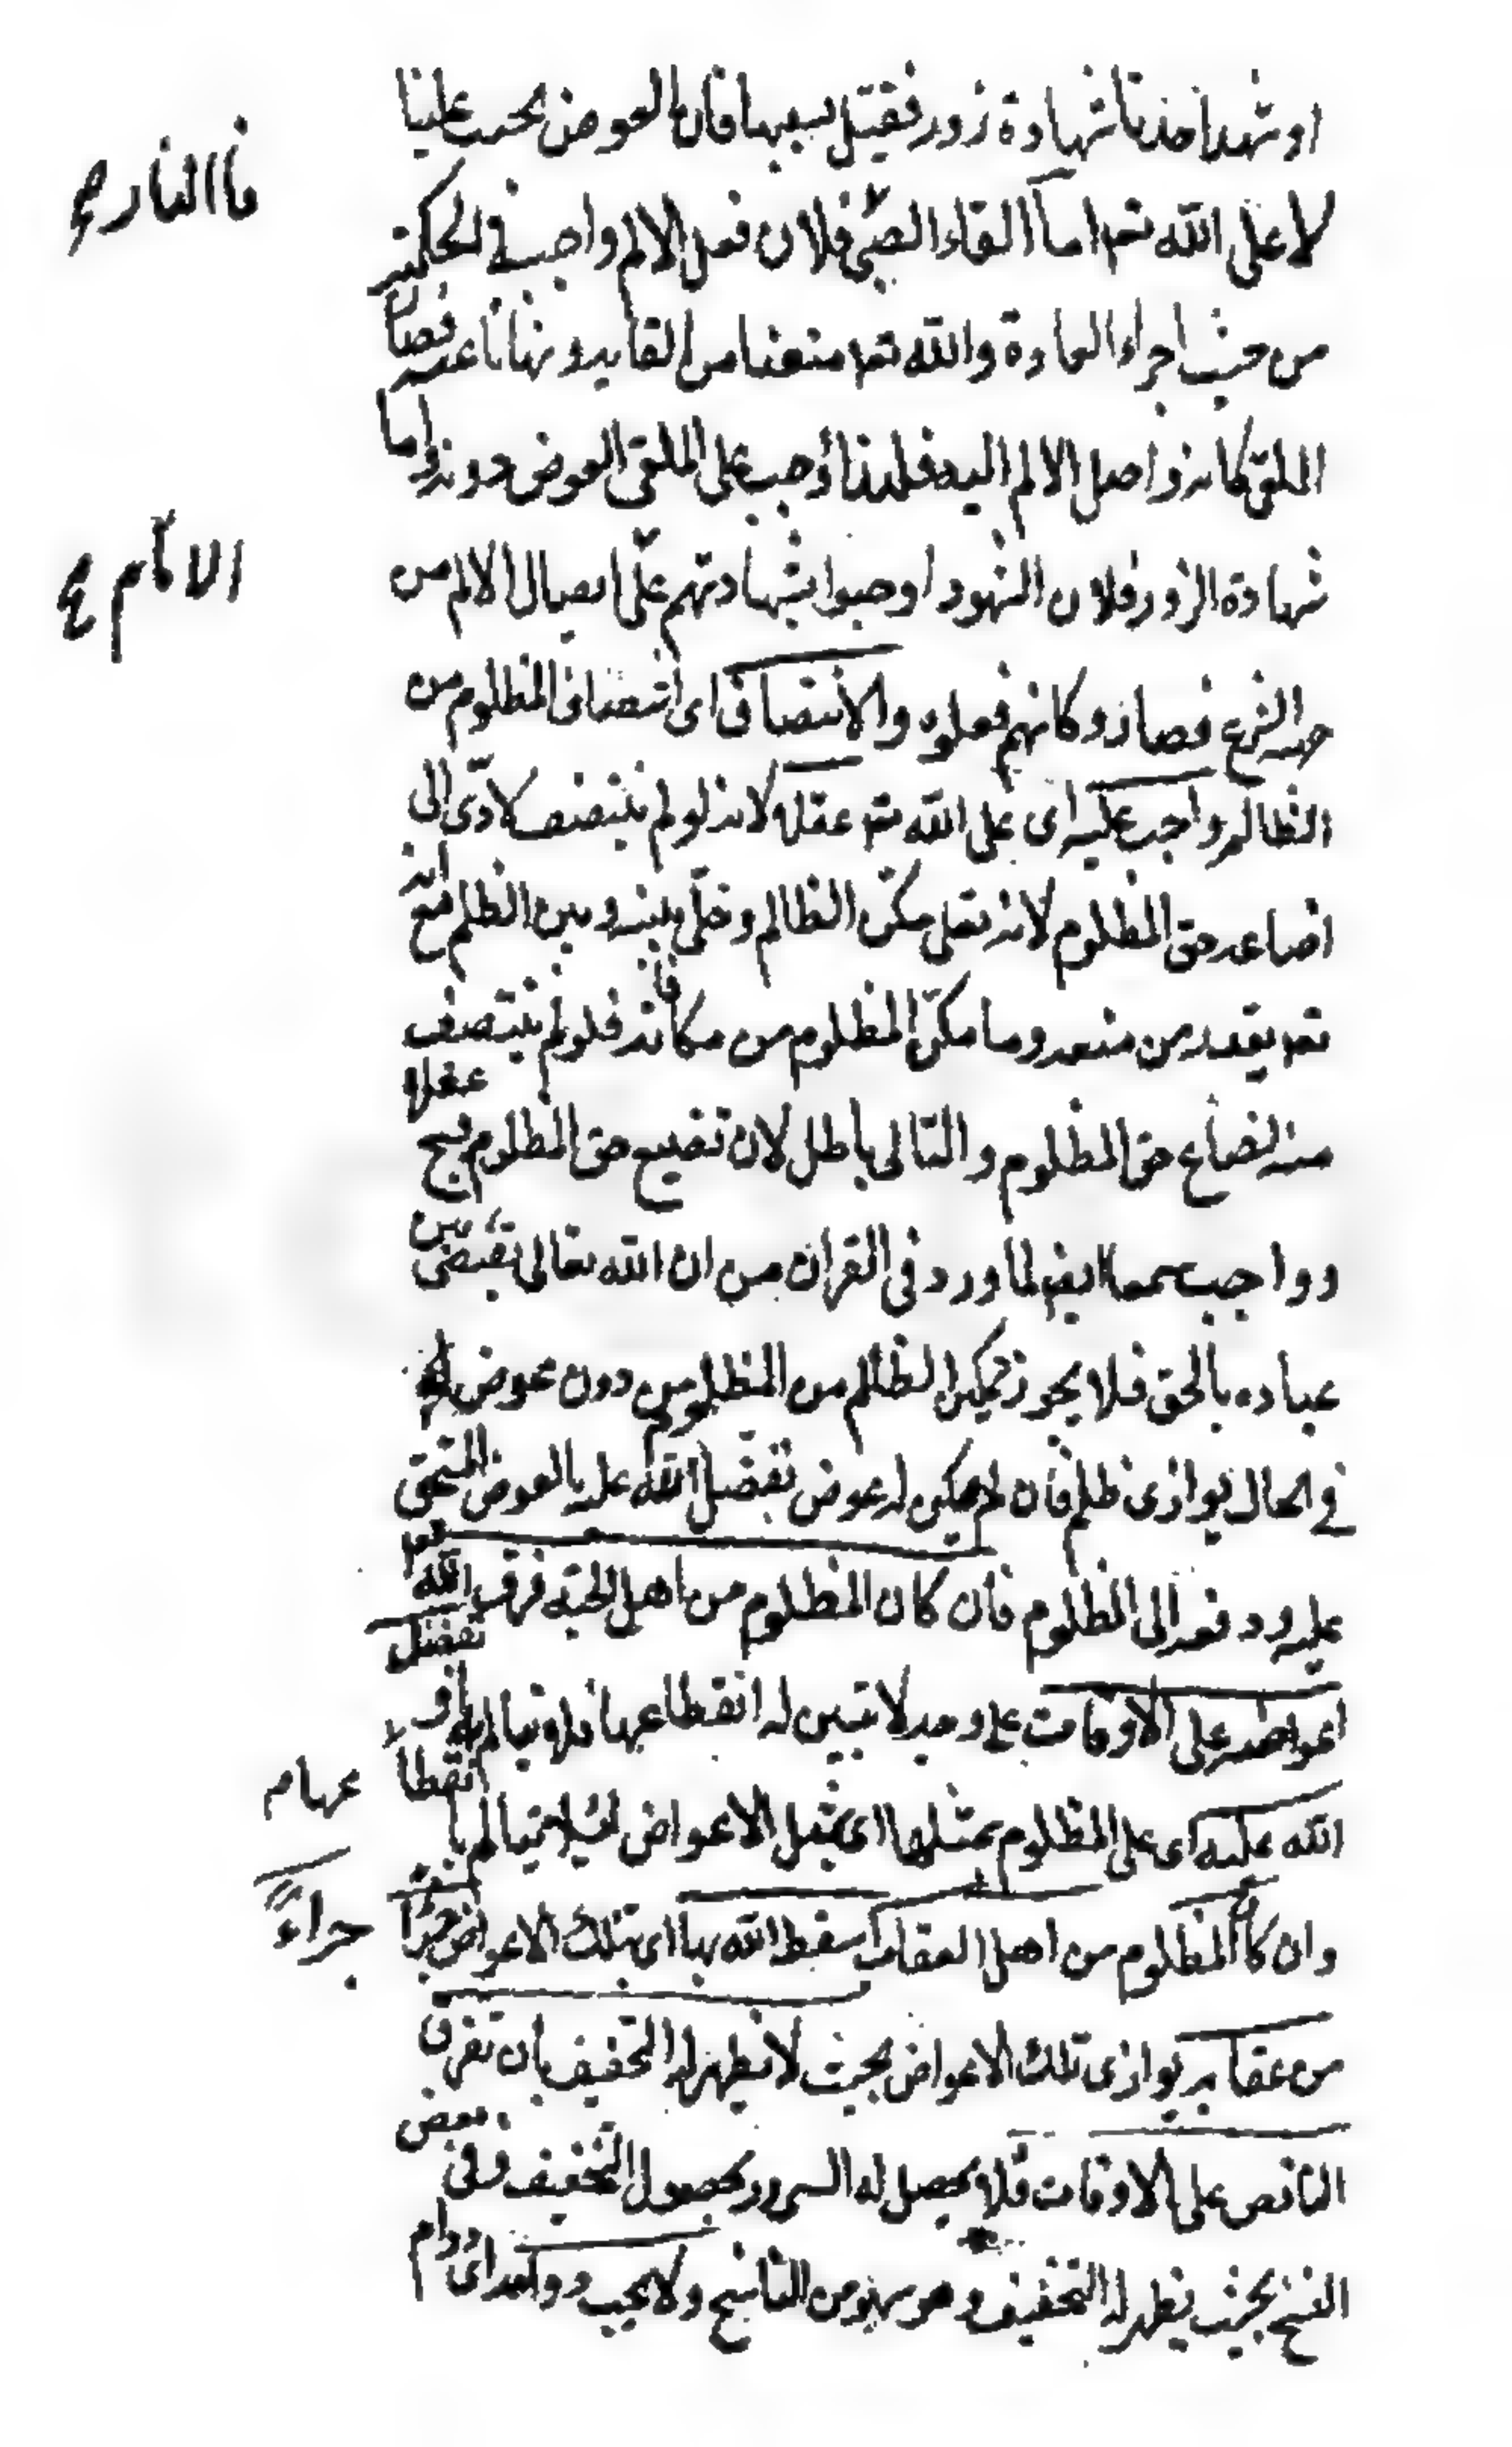 او شهد احدنا شهادة زور فقتل بسببها فان العوض يجب علينا
لا على الله تعم اما القاء الصبى فلان فعل الالم واجب فى الحكمة
من حيث اجراء العادة والله تعم منعنا من القايه ونهانا عنه فصار
الملقى كانه واصل الالم اليه فلهذا وجب على الملقى العوض دونه واما
شهادة الزور فلان الشهود اوجبوا بشهادتهم على ايصال الالم من
جهة الشرع فصاروكانهم فعلوه والانتصاف اى انتصاف المظلوم من
الظالم واجب عليه اى على الله تعم عقلا لانه لو لم ينتصف لادّى الى
اضاعه حق المظلوم لانه تعلى مكّن الظالم وخلّى بينه وبين الظلم مع انه
تعم يقدر من منعه وما مكّن المظلوم من مكافاته فلو لم ينتصف
منه لضاع حق المظلوم والتالى باطل لان تضييع حق المظلوم قبيح عقلا
وواجب سمعا ايض لما ورد فى القران من ان الله تعالى يقتضى بين
عباده بالحق فلا يجوز تمكين الظالم من المظلوم من دون عوض له
فى الحال يوازى ظلمه فان لم يكن له عوض تفضّل الله عليه بالعوض المستحق
عليه ودفعه الى المظلوم فان كان المظلوم من اهل الجنة فرق الله تعم
اعواضه على الاوقات على وجه لا تتبين له انقطاعها فلا يتالم او تفضل
الله عليه اى على المظلوم بمثلها اى بمثل الاعواض لئلا يتالم بانقطاعها
وان كان المظلوم من اهل العقاب اسقط الله بها اى بتلك الاعواض جزءا
من عقابه يوازى تلك الاعواض بحيث لا يظهر له التخفيف بان تفرق
الناقص على الاوقات فلا يحصل له السرور بحصول التخفيف وفى بعض
النسخ بحيث يظهر له التخفيف وهو سهو من الناسخ ولا يجب دوامه اى دوام
فا النار
الالام
عها م
جزاءً